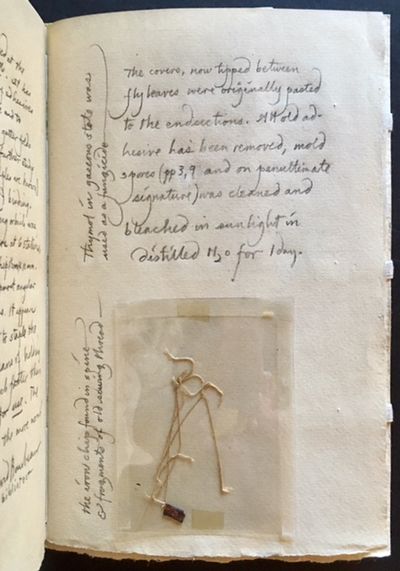 ed at the
and to
gutter folds
binding.
which was
to staple the
The
the most worn
The covers, now tipped between
flyleaves were originally pasted
to the endsections. All old ad-
hesive has been removed, mold
spores (pp 3,9 and on penultimate
signature) was cleaned and
bleached in sunlight in
distilled H₂O for 1 day.
Thymol in gaseous state was
used as a fungicide —
the iron chip found in spine
& fragments of old sewing thread —